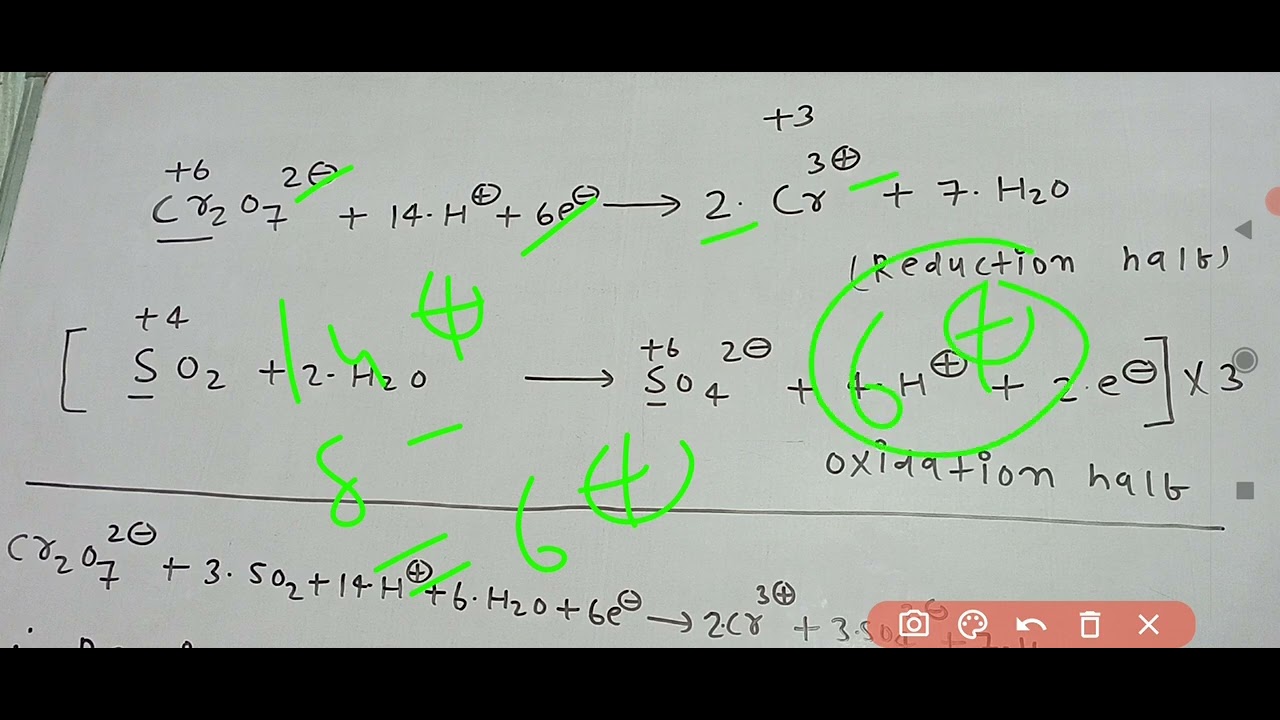 +3
+6
Cr₂O₇²⊖ + 14·H⊕ + 6e⊖ → 2·Cr³⊕ + 7·H₂O
(Reduction half)
14⊕ 6⊕
+4 +6
[SO₂ + 2·H₂O → SO₄²⊖ + 4·H⊕ + 2·e⊖] × 3
oxidation half
8⁻ 6⊕
Cr₂O₇²⊖ + 3·SO₂ + 14·H⊕ + 6·H₂O + 6e⊖ → 2·Cr³⊕ + 3·SO